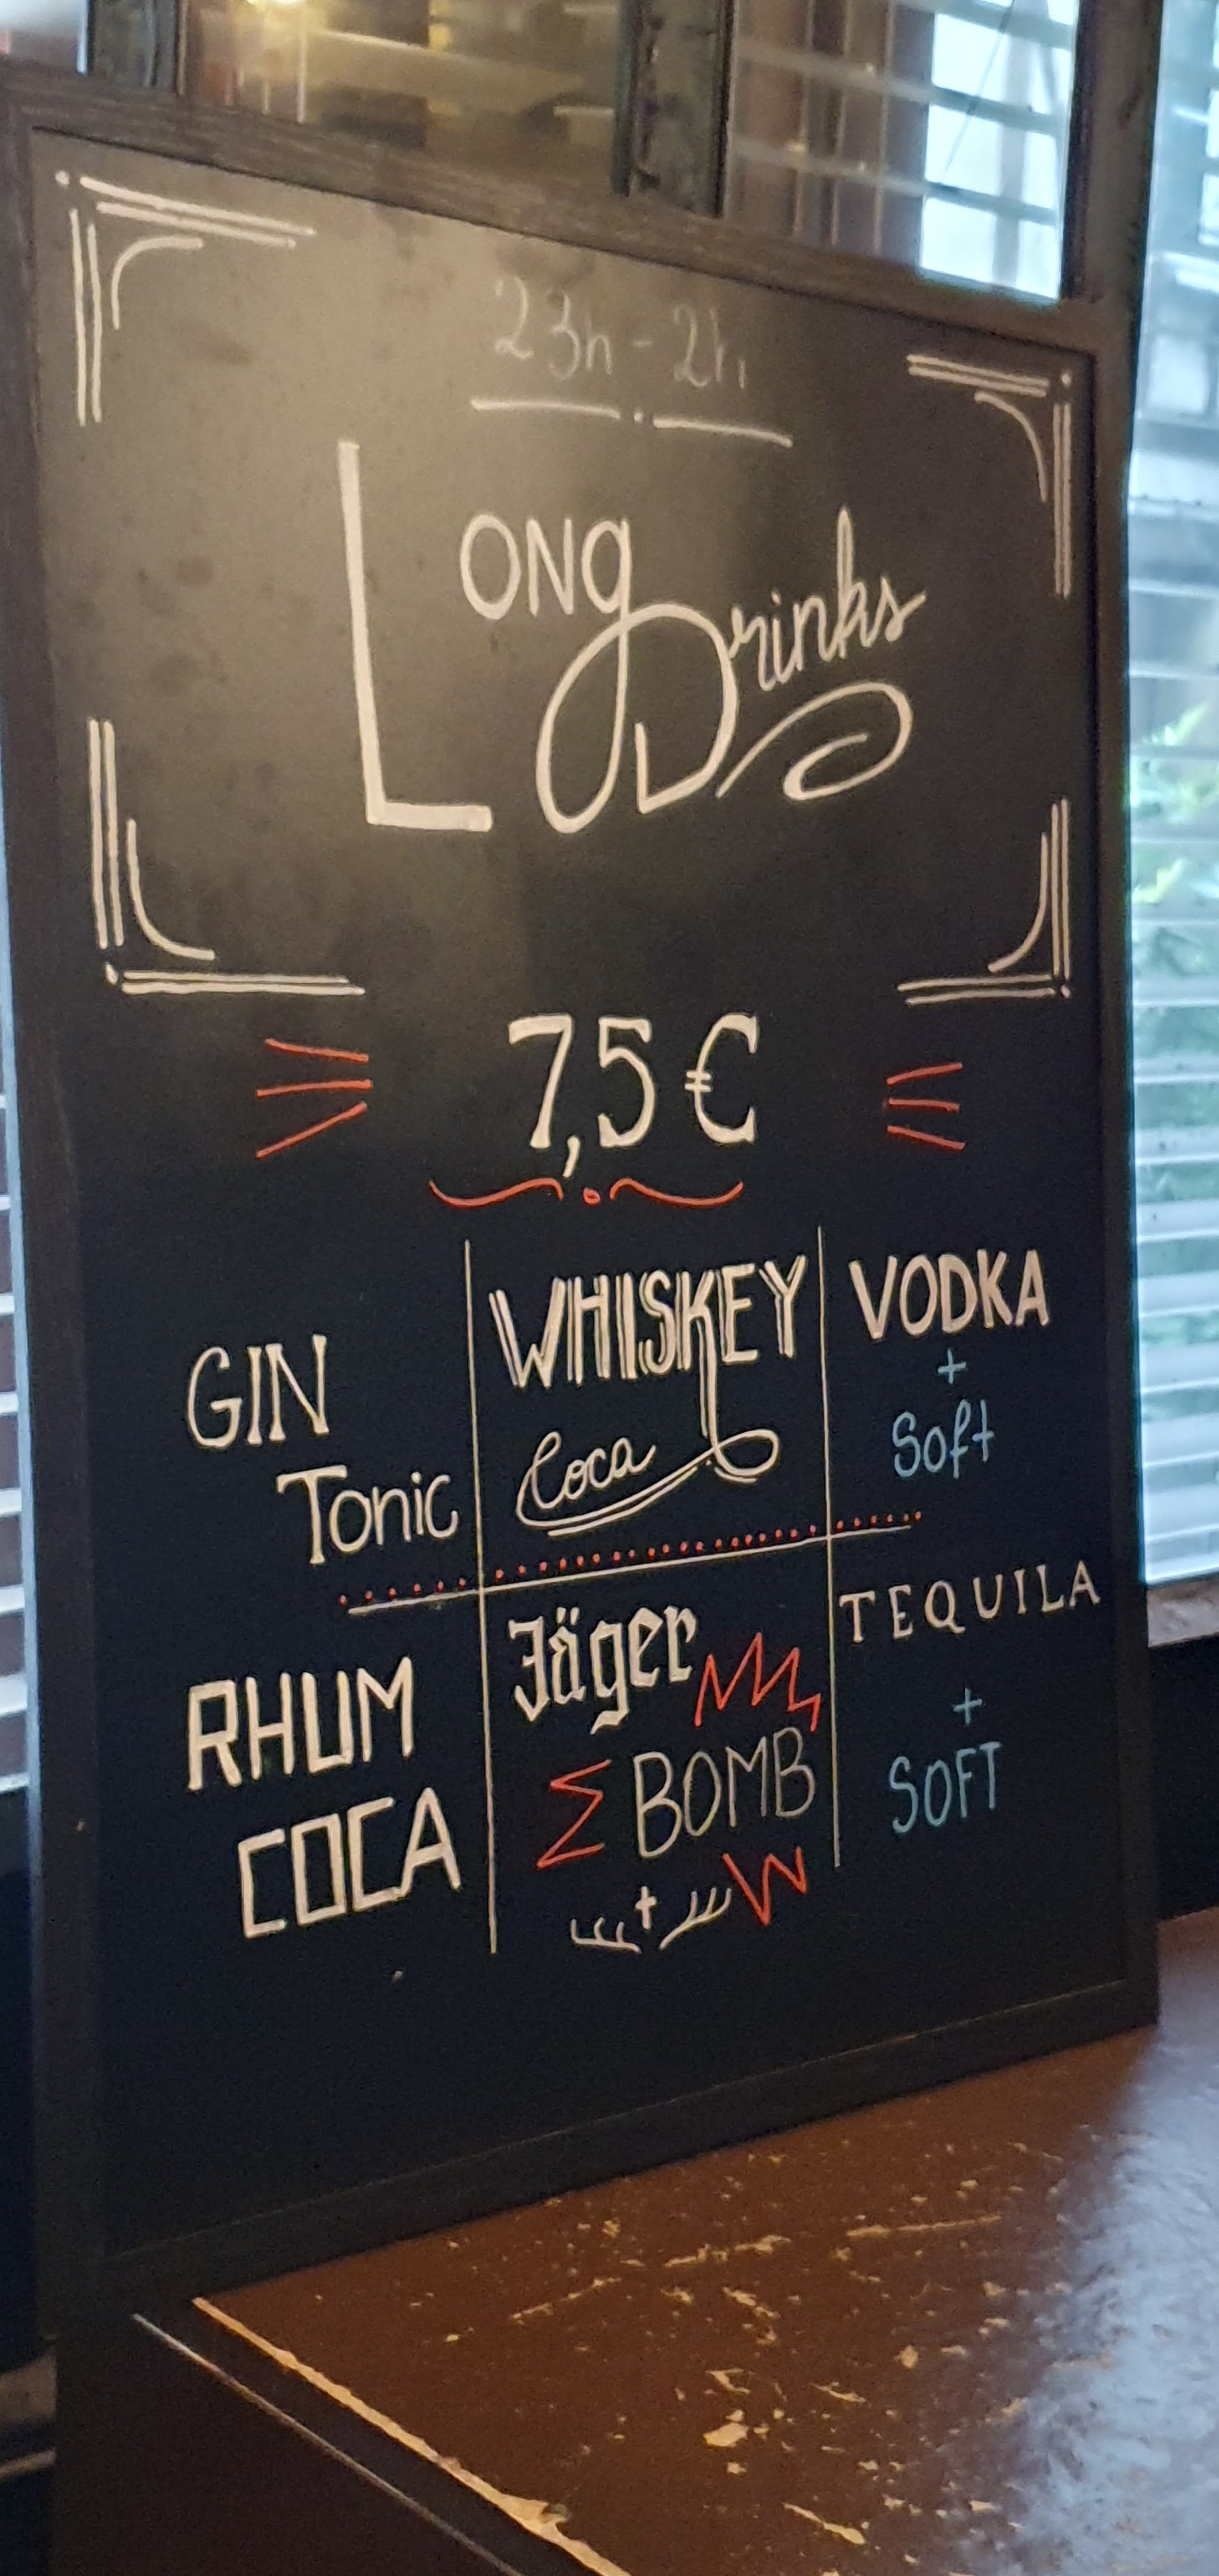 23h - 2h
LONg Drinks
7,5 €
GIN
Tonic
WHISKEY
Coca
VODKA
+
Soft
RHUM
COCA
Jäger
BOMB
TEQUILA
+
SOFT